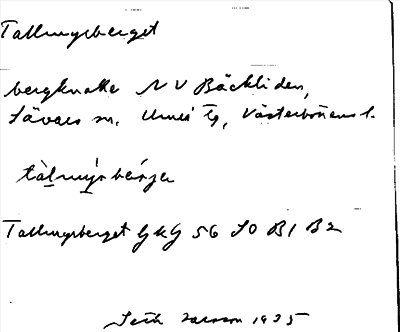 Tallmyrberget
bergknalle NV Bäckliden,
Sävars sn. Umeå tg, Västerbottens l.
tàlmyrbærje
Tallmyrberget GKG 56 SO B1 B2
Seth Larsson 1935